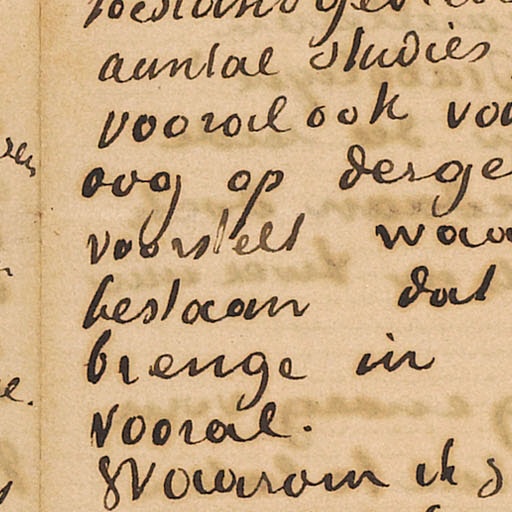 aantal studies
vooral ook
oog op
voorstelt
bestaan dat
brenge in
vooral.
Waarom ik